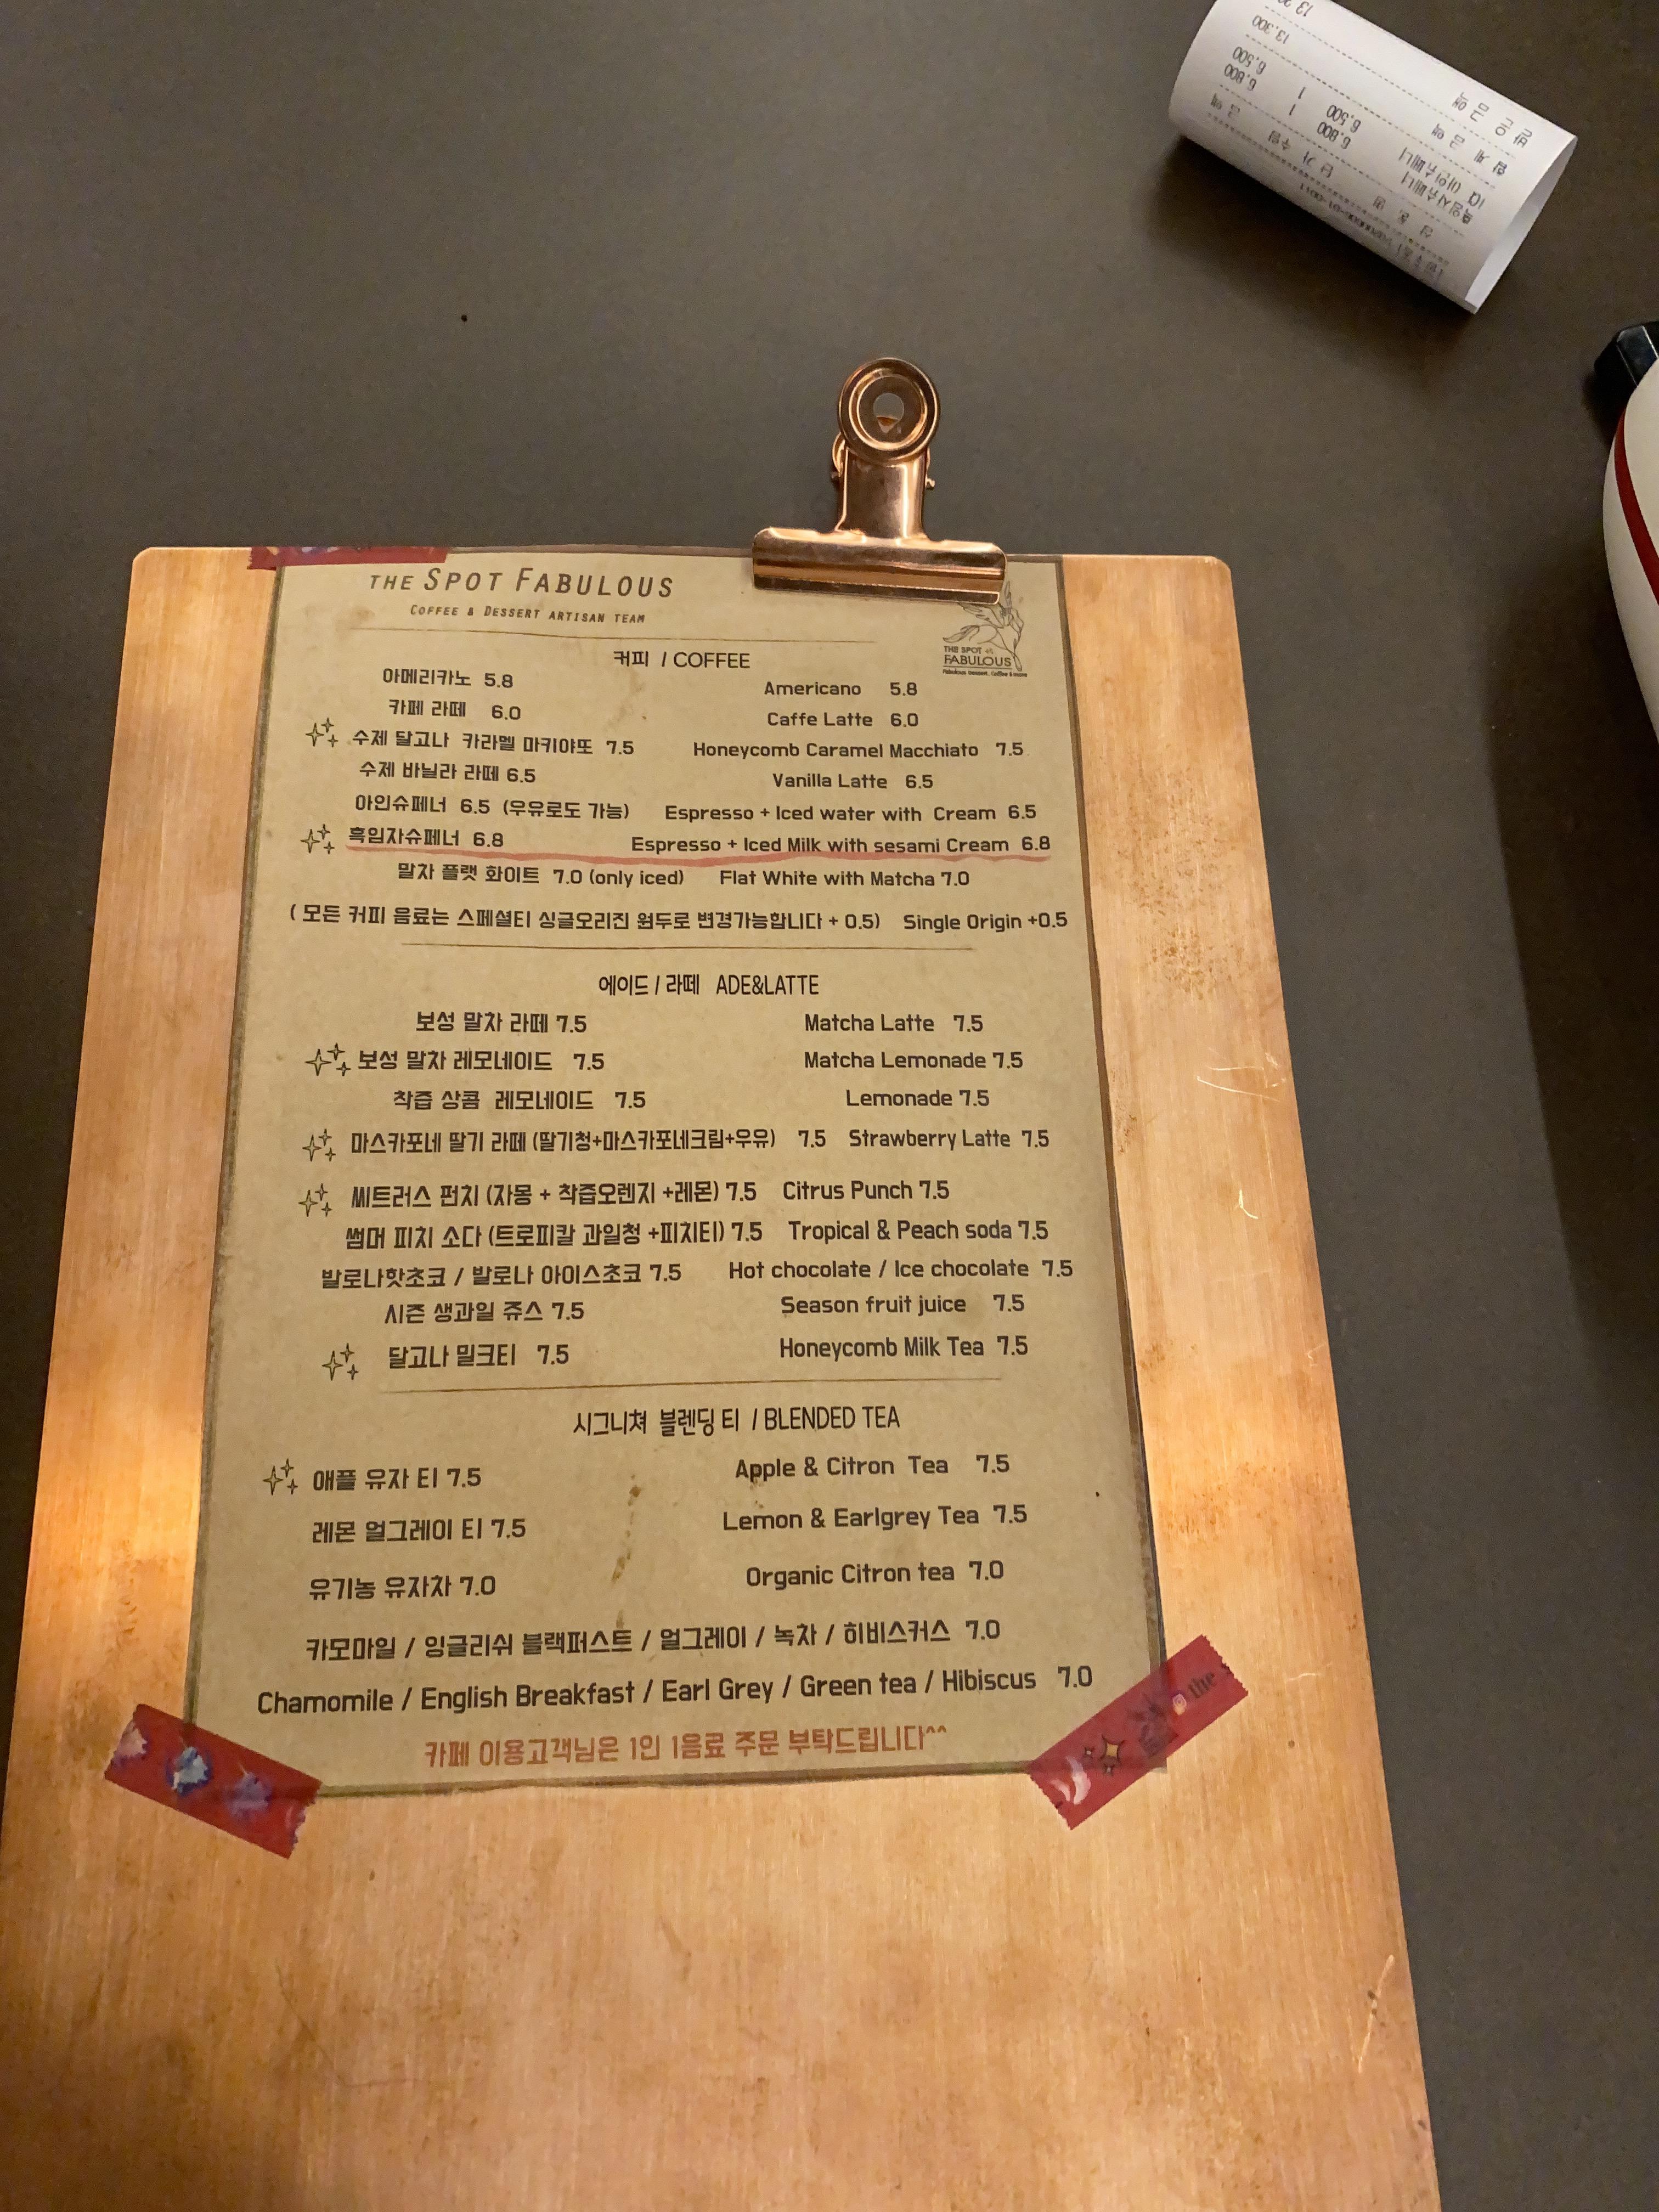 THE SPOT FABULOUS
COFFEE & DESSERT ARTISAN TEAM
THE SPOT
FABULOUS
Fabulous Dessert, Coffee & more
커피 / COFFEE
아메리카노 5.8 Americano 5.8
카페 라떼 6.0 Caffe Latte 6.0
수제 달고나 카라멜 마키아또 7.5 Honeycomb Caramel Macchiato 7.5
수제 바닐라 라떼 6.5 Vanilla Latte 6.5
아인슈페너 6.5 (우유로도 가능) Espresso + Iced water with Cream 6.5
흑임자슈페너 6.8 Espresso + Iced Milk with sesami Cream 6.8
말차 플랫 화이트 7.0 (only iced) Flat White with Matcha 7.0
( 모든 커피 음료는 스페셜티 싱글오리진 원두로 변경가능합니다 + 0.5) Single Origin +0.5
에이드 / 라떼 ADE&LATTE
보성 말차 라떼 7.5 Matcha Latte 7.5
보성 말차 레모네이드 7.5 Matcha Lemonade 7.5
착즙 상콤 레모네이드 7.5 Lemonade 7.5
마스카포네 딸기 라떼 (딸기청+마스카포네크림+우유) 7.5 Strawberry Latte 7.5
씨트러스 펀치 (자몽 + 착즙오렌지 +레몬) 7.5 Citrus Punch 7.5
썸머 피치 소다 (트로피칼 과일청 +피치티) 7.5 Tropical & Peach soda 7.5
발로나핫초코 / 발로나 아이스초코 7.5 Hot chocolate / Ice chocolate 7.5
시즌 생과일 쥬스 7.5 Season fruit juice 7.5
달고나 밀크티 7.5 Honeycomb Milk Tea 7.5
시그니쳐 블렌딩 티 / BLENDED TEA
애플 유자 티 7.5 Apple & Citron Tea 7.5
레몬 얼그레이 티 7.5 Lemon & Earlgrey Tea 7.5
유기농 유자차 7.0 Organic Citron tea 7.0
카모마일 / 잉글리쉬 블랙퍼스트 / 얼그레이 / 녹차 / 히비스커스 7.0
Chamomile / English Breakfast / Earl Grey / Green tea / Hibiscus 7.0
카페 이용고객님은 1인 1음료 주문 부탁드립니다^^
the
단 가 수량 금 액
흑임자슈페너 6,800 1 6,800
아인슈페너 6,500 1 6,500
합 계 금 액 13,300
받 은 금 액